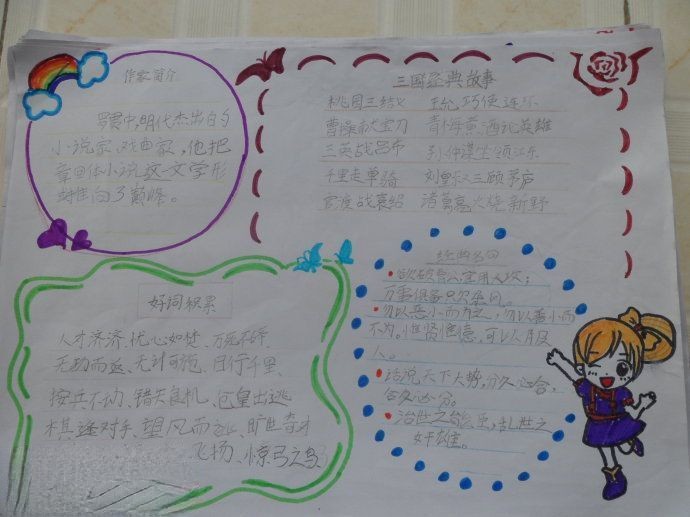 作家简介
罗贯中,明代杰出的
小说家、戏曲家,他把
章回体小说这一文学形
推向了巅峰。
三国经典故事
桃园三结义 王允巧使连环
曹操献宝刀 青梅煮酒论英雄
三英战吕布 孙仲谋坐领江东
千里走单骑 刘皇叔三顾茅庐
官渡战袁绍 诸葛亮火烧新野
好词积累
人才济济、忧心如焚、万死不辞
无功而返、无计可施、日行千里
按兵不动、错失良机、仓皇出逃
棋逢对手、望风而逃、旷世奇才
飞扬、惊弓之鸟
经典名句
欲破曹公,宜用火攻;
万事俱备,只欠东风。
勿以恶小而为之,勿以善小而
不为。惟贤惟德,可以服
人。
话说天下大势,分久必合,
合久必分。
治世之能臣,乱世之
奸雄。